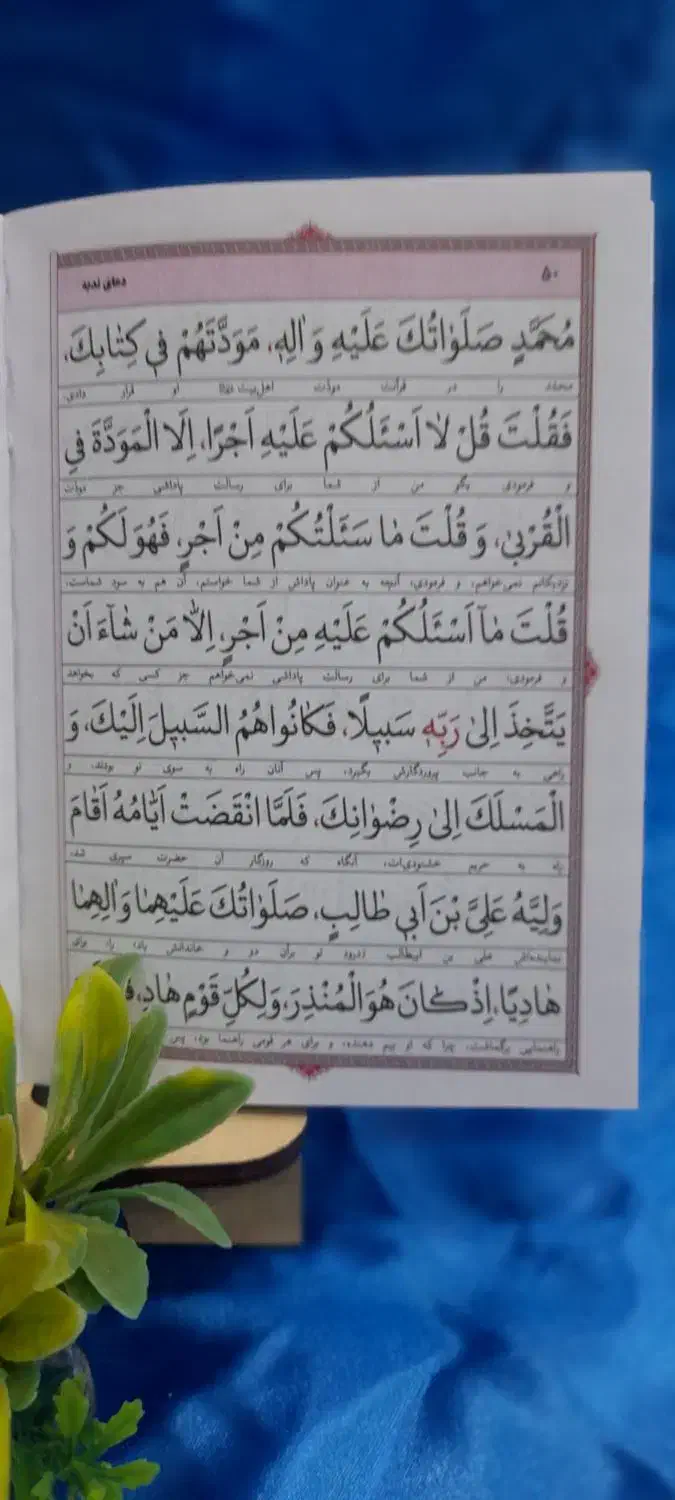 ۵۰
دعای ندبه
مُحَمَّدٍ صَلَوٰاتُكَ عَلَيْهِ وَ اٰلِهِ، مَوَدَّتَهُمْ فى كِتٰابِكَ،
محمّد را در قرآنت مودّت اهل‌بیت او قرار دادی،
فَقُلْتَ قُلْ لاٰ اَسْئَلُكُمْ عَلَيْهِ اَجْرًا، اِلَّا الْمَوَدَّةَ فِى
و فرمودی بگو من از شما برای رسالت پاداشی جز مودّت
الْقُرْبىٰ، وَ قُلْتَ مٰا سَئَلْتُكُمْ مِنْ اَجْرٍ، فَهُوَ لَكُمْ وَ
نزدیکانم نمی‌خواهم، و فرمودی: آنچه به عنوان پاداش از شما خواستم، آن هم به سود شماست،
قُلْتَ مٰآ اَسْئَلُكُمْ عَلَيْهِ مِنْ اَجْرٍ، اِلّاٰ مَنْ شٰآءَ اَنْ
و فرمودی: من از شما برای رسالت پاداشی نمی‌خواهم جز کسی که بخواهد
يَتَّخِذَ اِلىٰ رَبِّهٖ سَبيلًا، فَكٰانُوا هُمُ السَّبيلَ اِلَيْكَ، وَ
راهی به جانب پروردگارش بگیرد، پس آنان راه به سوی تو بودند، و
الْمَسْلَكَ اِلىٰ رِضْوٰانِكَ، فَلَمَّا انْقَضَتْ اَيّٰامُهُ اَقٰامَ
راه به حریم خشنودی‌ات، آنگاه که روزگار آن حضرت سپری شد،
وَلِيَّهُ عَلِىَّ بْنَ اَبى طٰالِبٍ، صَلَوٰاتُكَ عَلَيْهِمٰا وَ اٰلِهِمٰا
نماینده‌اش علی بن ابیطالب (درود تو بر آن دو و خاندانش باد) را، برای
هٰادِيًا، اِذْ كٰانَ هُوَ الْمُنْذِرَ، وَ لِكُلِّ قَوْمٍ هٰادٍ،
راهنمایی برگماشت، چرا که او بیم دهنده، و برای هر قومی راهنما بود، پس